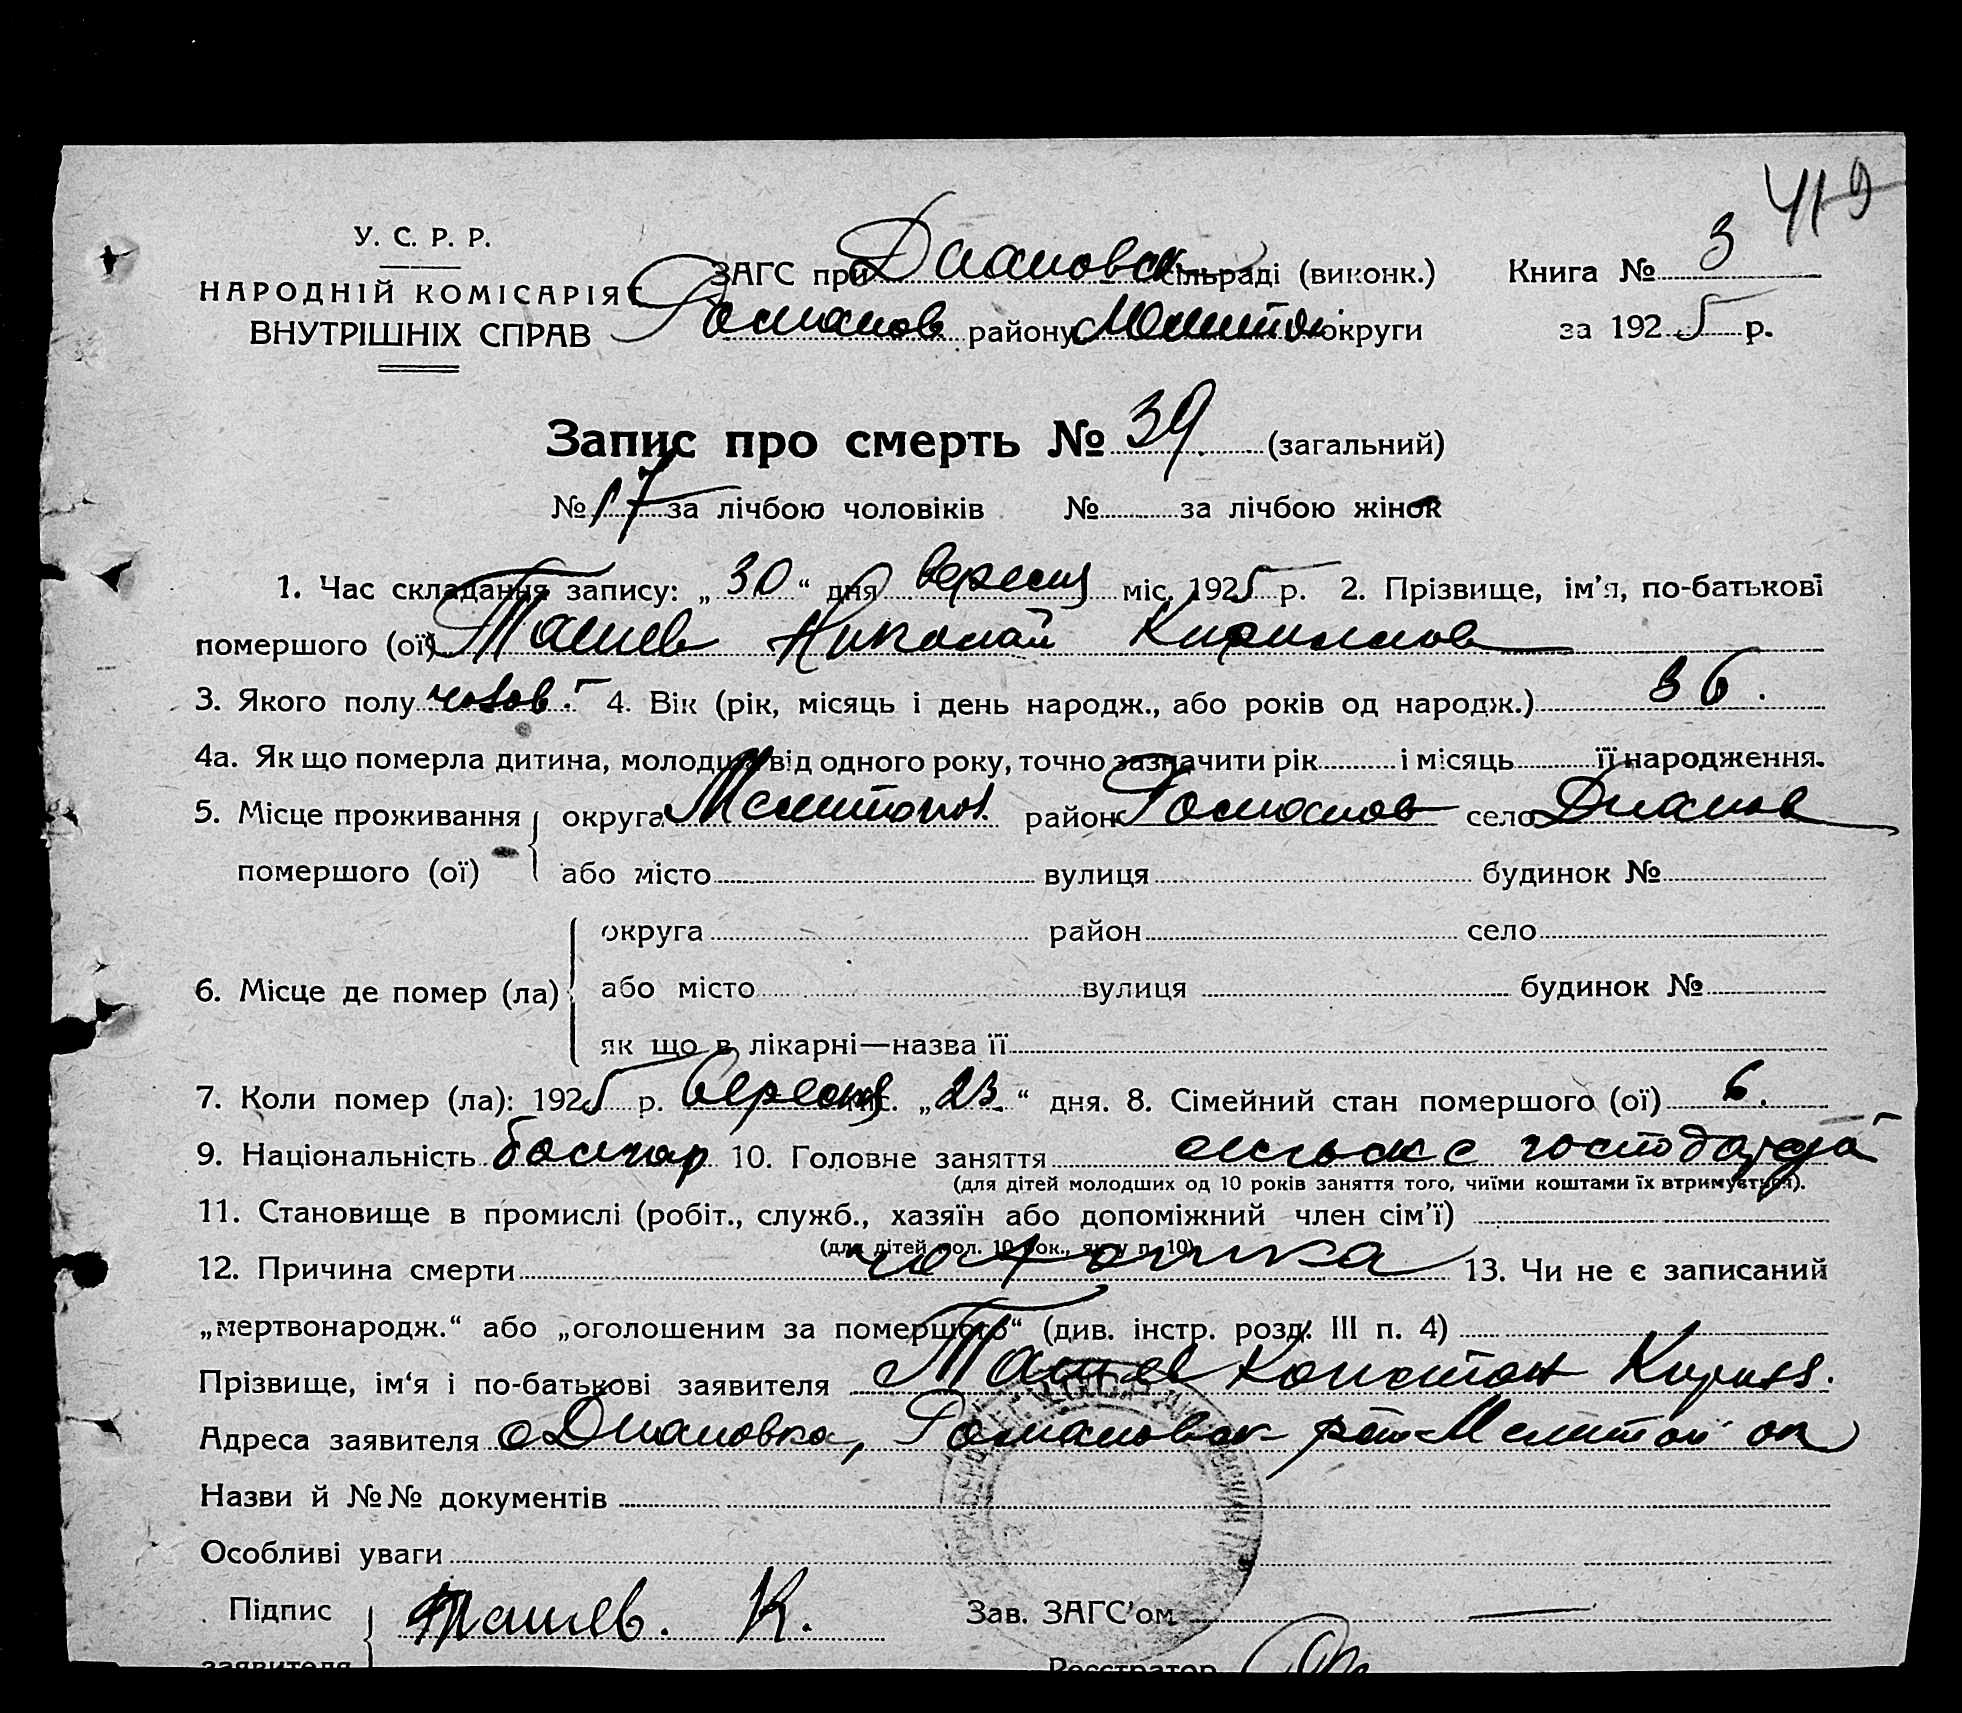 419
У. С. Р. Р.
НАРОДНІЙ КОМІСАРІЯТ
ВНУТРІШНІХ СПРАВ
ЗАГС при Диановск сільраді (виконк.) Книга № 3
Романов району Мелитоп округи за 1925 р.
Запис про смерть № 39 (загальний)
№ 17 за лічбою чоловіків № за лічбою жінок
1. Час складання запису: „30“ дня вересня міс. 1925 р. 2. Прізвище, ім'я, по-батькові
помершого (ої) Ташев Николай Кириллов
3. Якого полу чолов. 4. Вік (рік, місяць і день народж., або років од народж.) 36.
4а. Як що померла дитина, молодша від одного року, точно зазначити рік і місяць її народження.
5. Місце проживання округа Мелитопол. район Романов село Дианов
помершого (ої) або місто вулиця будинок №
округа район село
6. Місце де помер (ла) або місто вулиця будинок №
як що в лікарні—назва її
7. Коли помер (ла): 1925 р. вересня міс. „23.“ дня. 8. Сімейний стан помершого (ої) 6.
9. Національність болгар 10. Головне заняття сільск с господарa
(для дітей молодших од 10 років заняття того, чиїми коштами їх втримується).
11. Становище в промислі (робіт., служб., хазяїн або допоміжний член сім'ї)
(для дітей мол. 10 рок., як у п. 10)
12. Причина смерти чахотка 13. Чи не є записаний
„мертвонародж.“ або „оголошеним за помершого“ (див. інстр. розд. III п. 4)
Прізвище, ім'я і по-батькові заявителя Ташев Констан Кирил.
Адреса заявителя с Диановка, Романовск рай Мелитоп ок
Назви й №№ документів
Особливі уваги
Підпис Ташев. К. Зав. ЗАГС'ом
заявителя Реєстратор